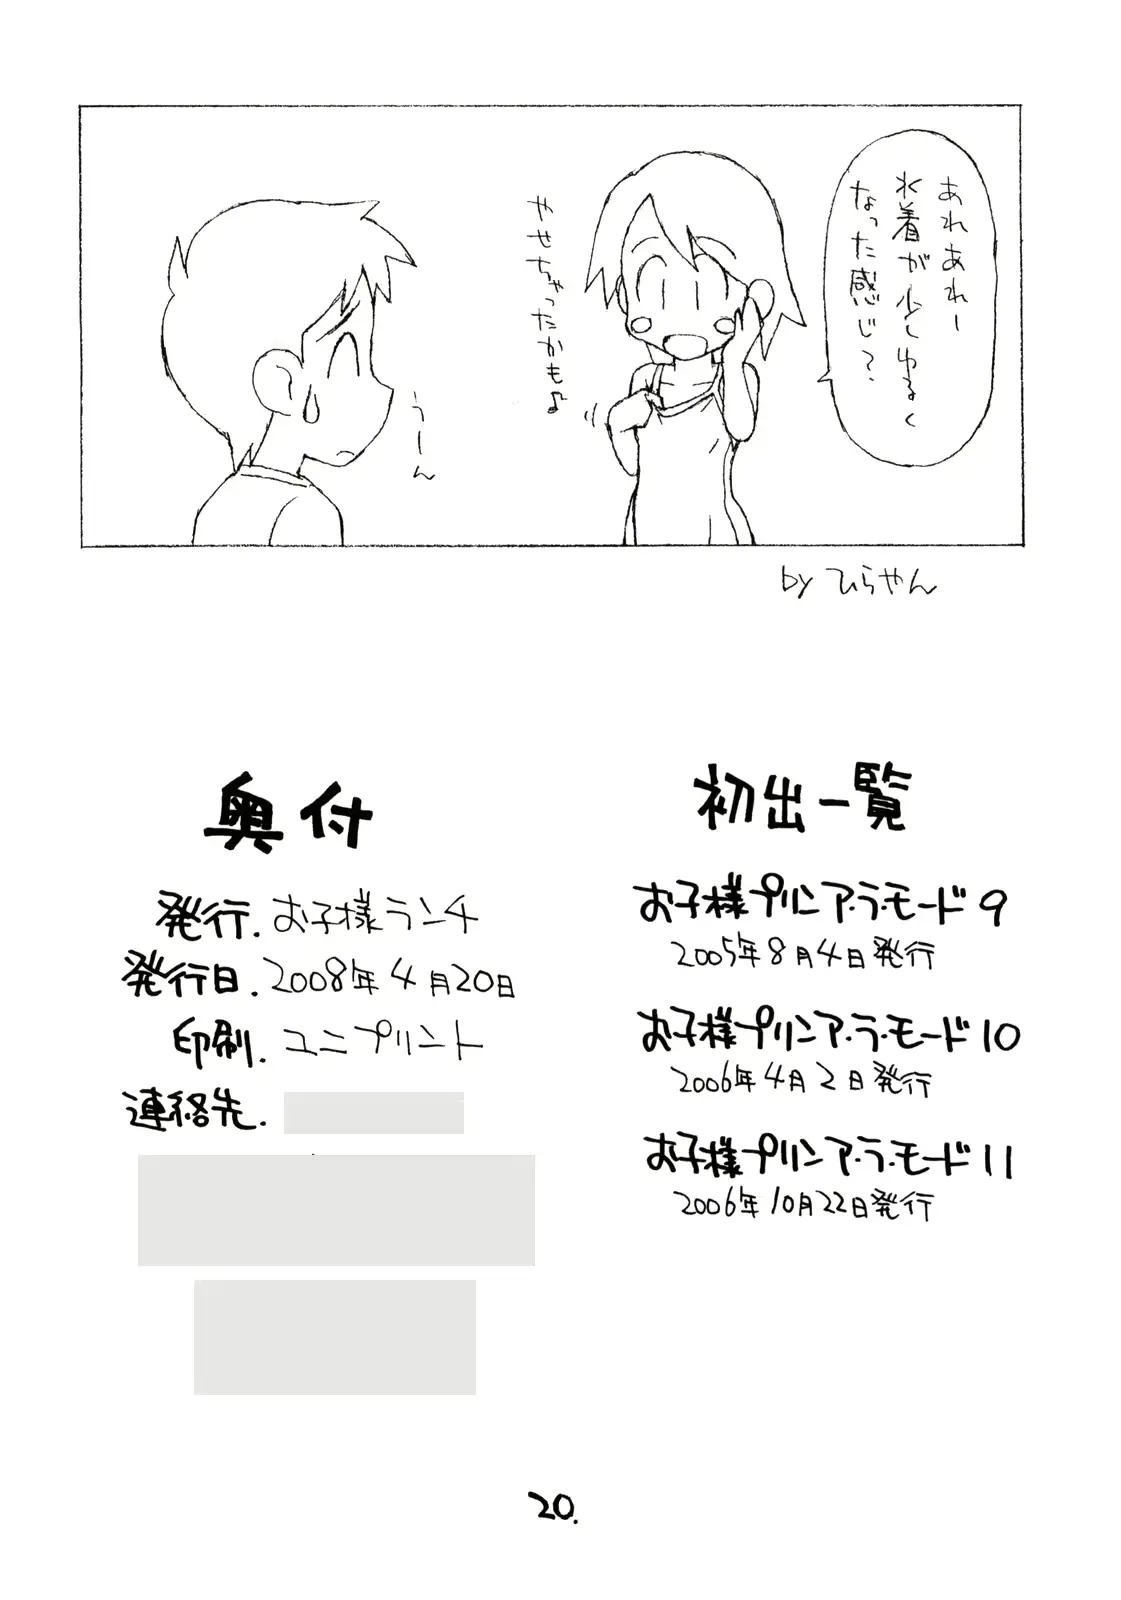 あれあれー
水着が少しゆるく
なった感じ?
やせちゃったかも♪
うーん
by ひらやん
初出一覧
お子様プリンア・ラ・モード9
2005年8月4日発行
お子様プリンア・ラ・モード10
2006年4月2日発行
お子様プリンア・ラ・モード11
2006年10月22日発行
奥付
発行. お子様ランチ
発行日. 2008年4月20日
印刷. ユニプリント
連絡先.
20.